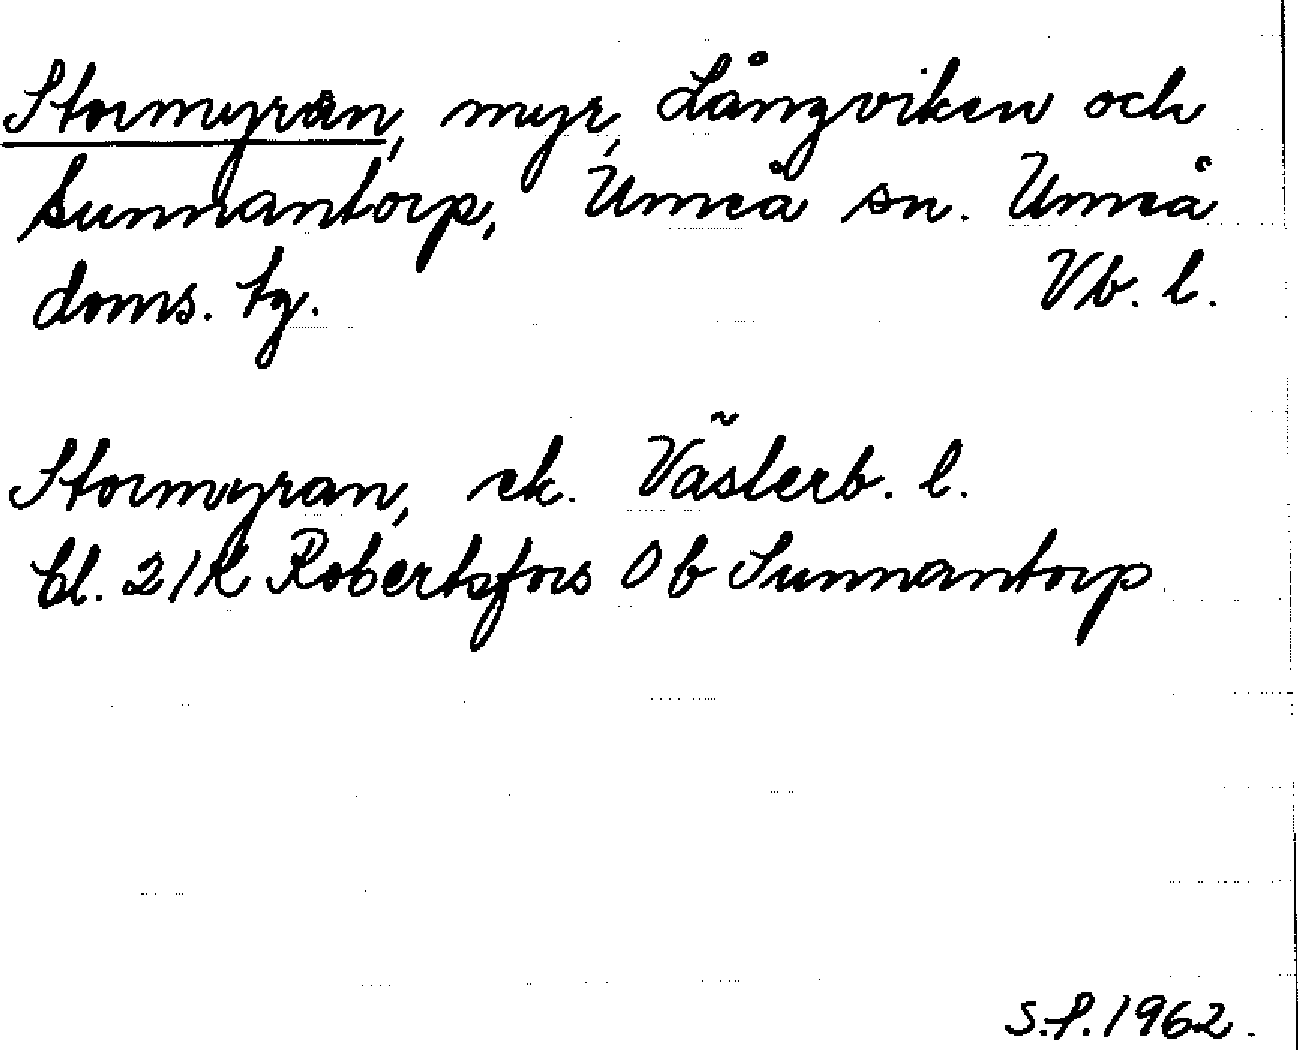 Stormyran, myr, Långviken och
Sunnantorp, Umeå sn. Umeå
doms. tg. Vb. l.
Stormyran, ek. Västerb. l.
bl. 21K Robertsfors Ob Sunnantorp
S.P. 1962.